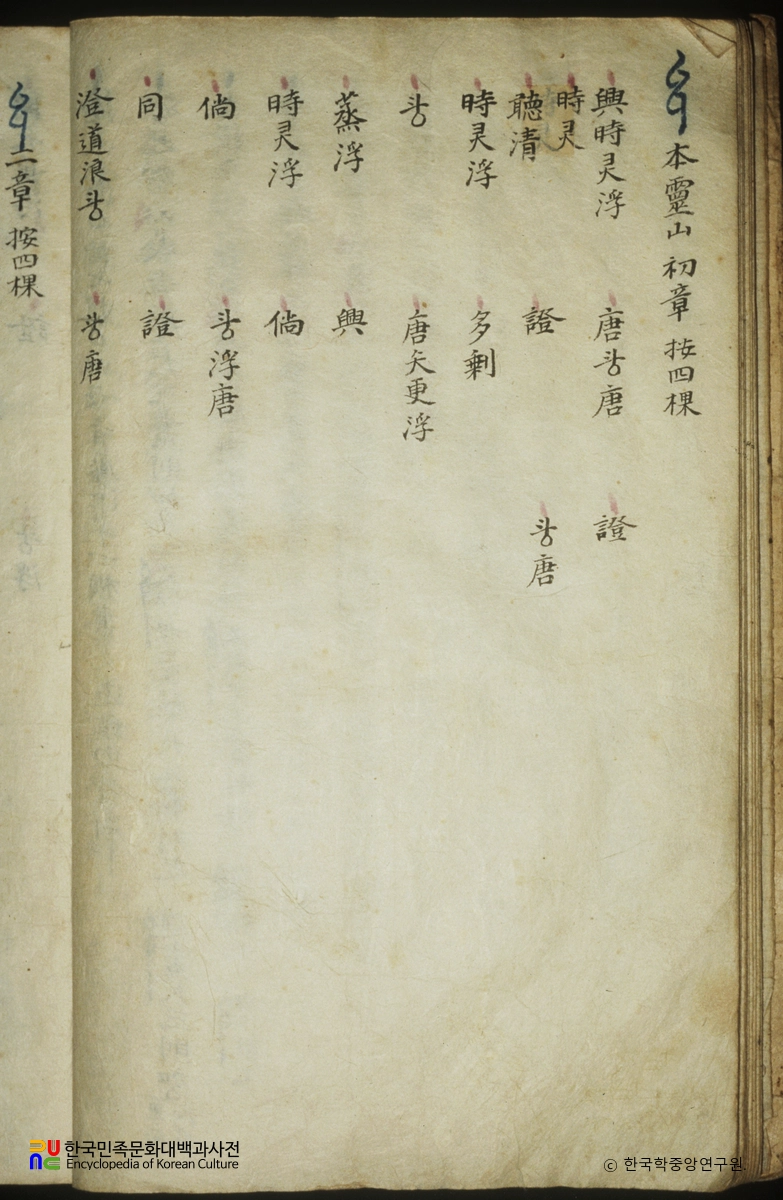 本靈山 初章 按四棵
興時灵浮 唐쌍唐 證
時灵
聽清 證 쌍唐
時灵浮 多剩
쌍 唐矢更浮
蒸浮 興
時灵浮 倘
倘 쌍浮唐
同 證
澄道浪쌍 쌍唐
二章 按四棵
한국민족문화대백과사전
Encyclopedia of Korean Culture
ⓒ 한국학중앙연구원.